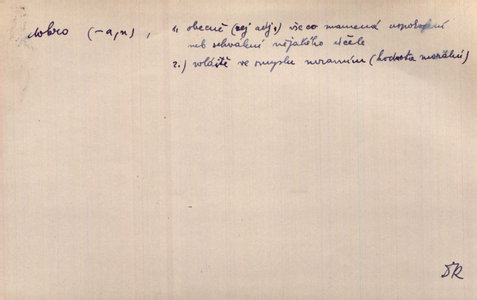 dobro (-a, n), 1. obecně (též adj.) vše co znamená uspokojení
neb schválení nějakého účele
2.) zvláště ve smyslu mravním (hodnota morální)
DR